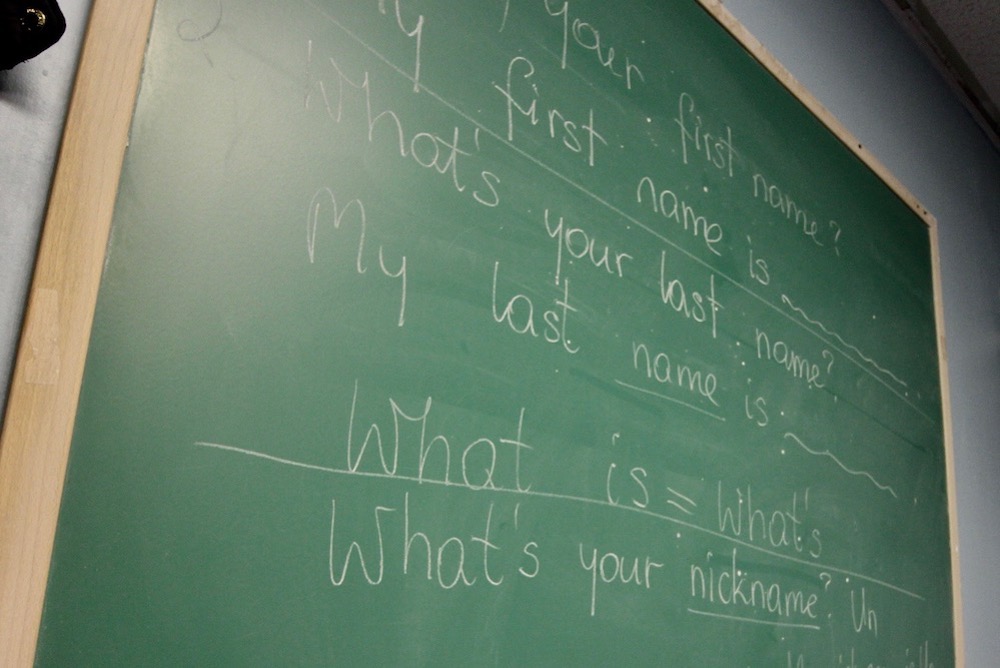 your first name?
My first name is
What's your last name?
My last name is
What is = What's
What's your nickname? Un